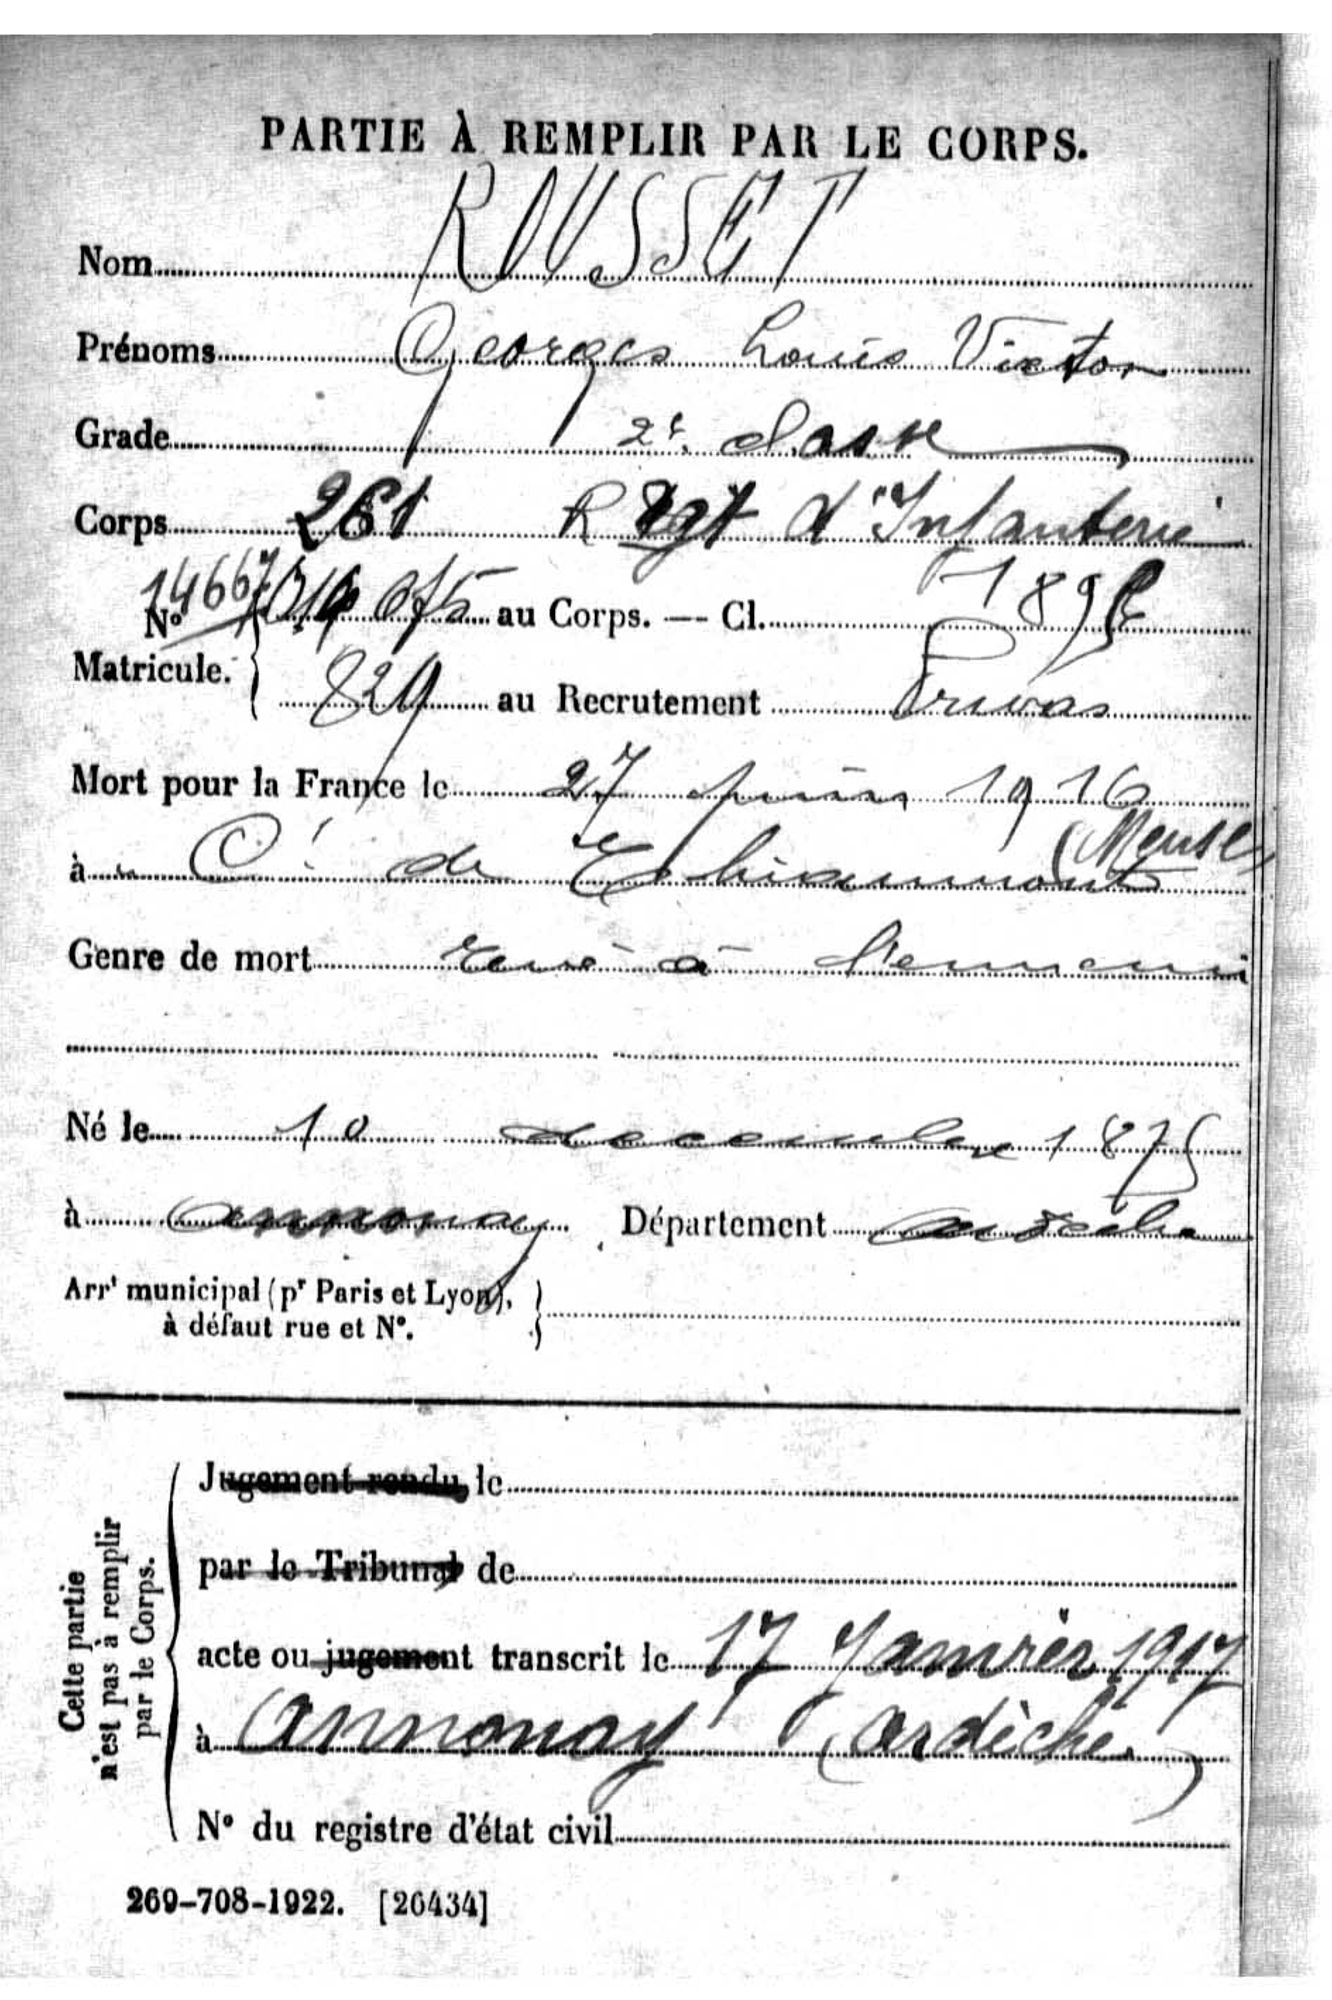 PARTIE À REMPLIR PAR LE CORPS.
Nom ROUSSET
Prénoms Georges Louis Victor
Grade 2e classe
Corps 261 R Rgt d'Infanterie
14667
No 075 au Corps. — Cl. 1895
Matricule. 829 au Recrutement Privas
Mort pour la France le 27 juin 1916
à Ct de Thiaumont (Meuse)
Genre de mort tué à l'ennemi
Né le 10 decembre 1875
à annonay Département ardèche
Arrt municipal (pr Paris et Lyon),
à défaut rue et N°.
Cette partie
n'est pas à remplir
par le Corps.
Jugement rendu le
par le Tribunal de
acte ou jugement transcrit le 17 Janvier 1917
à annonay (ardèche)
N° du registre d'état civil
269-708-1922. [26434]